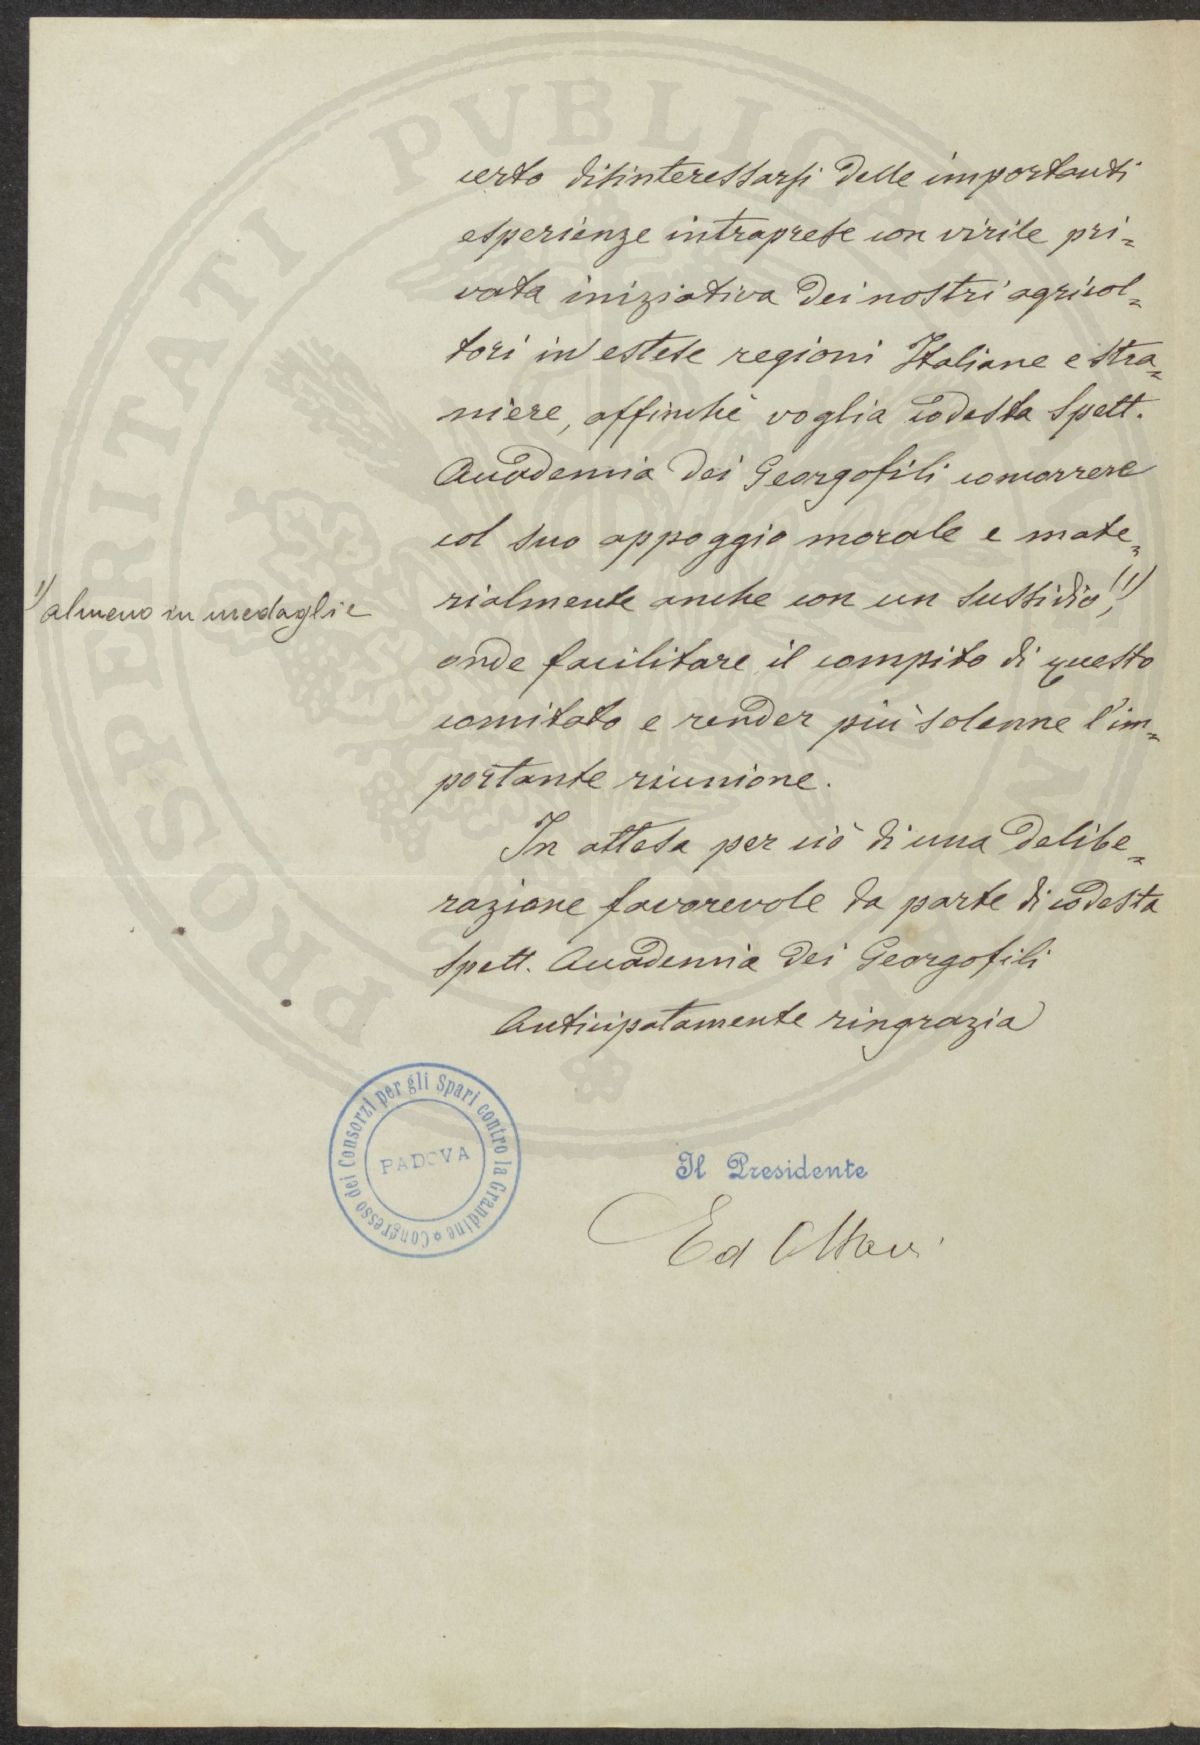 certo disinteressarsi delle importanti
esperienze intraprese con virile pri=
vata iniziativa dei nostri agricol=
tori in estese regioni Italiane e stra=
niere, affinchè voglia codesta Spett.
Accademia dei Georgofili concorrere
col suo appoggio morale e mate=
rialmente anche con un sussidio, 1)
1) almeno in medaglie
onde facilitare il compito di questo
comitato e render più solenne l'im=
portante riunione.
In attesa per ciò di una delibe=
razione favorevole da parte di codesta
Spett. Accademia dei Georgofili
Anticipatamente ringrazia
Congresso dei Consorzi per gli Spari contro la Grandine
PADOVA
Il Presidente
Ed Ottavi
PROSPERITATI PVBLICAE